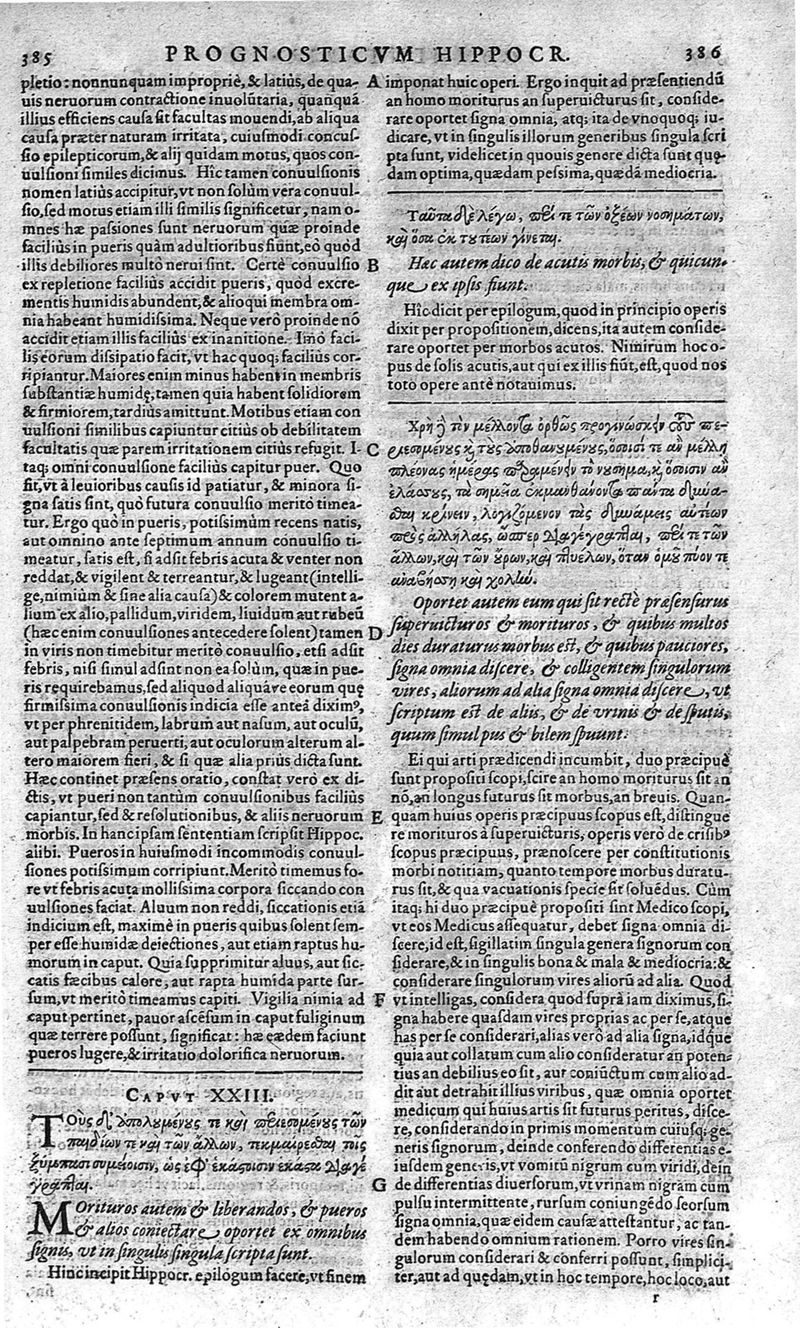 385
PROGNOSTICVM HIPPOCR.
386
pletio: nonnunquam impropriè, & latiùs, de qua-
uis neruorum contractione inuolūtaria, quanquā
illius efficiens causa sit facultas mouendi, ab aliqua
causa præter naturam irritata, cuiusmodi concus-
sio epilepticorum, & alij quidam motus, quos con-
uulsioni similes dicimus. Hîc tamen conuulsionis
nomen latiùs accipitur, vt non solùm vera conuul-
sio, sed motus etiam illi similis significetur, nam o-
mnes hæ passiones sunt neruorum quæ proinde
faciliùs in pueris quàm adultioribus fiūt, eò quód
illis debiliores multò nerui sint. Certè conuulsio
ex repletione faciliùs accidit pueris, quod excre-
mentis humidis abundent, & alioqui membra om-
nia habeant humidissima. Neque verò proinde nō
accidit etiam illis faciliùs ex inanitione. Imò faci-
lis eorum dissipatio facit, vt hac quoq; faciliùs cor-
ripiantur. Maiores enim minus habent in membris
substantiæ humidę, tamen quia habent solidiorem
& firmiorem, tardiùs amittunt. Motibus etiam con
uulsioni similibus capiuntur citiùs ob debilitatem
facultatis quæ parem irritationem citiùs refugit. I-
taq; omni conuulsione faciliùs capitur puer. Quo
fit, vt à leuioribus causis id patiatur, & minora si-
gna satis sint, quò futura conuulsio meritò timea-
tur. Ergo quò in pueris, potissimùm recens natis,
aut omnino ante septimum annum conuulsio ti-
meatur, satis est, si adsit febris acuta & venter non
reddat, & vigilent & terreantur, & lugeant (intelli-
ge, nimium & sine alia causa) & colorem mutent a-
lium ex alio, pallidum, viridem, liuidum aut rubeū
(hæc enim conuulsiones antecedere solent) tamen
in viris non timebitur meritò conuulsio, etsi adsit
febris, nisi simul adsint non ea solùm, quæ in pue-
ris requirebamus, sed aliquod aliquáve eorum quę
firmissima conuulsionis indicia esse anteà diximꝰ,
vt per phrenitidem, labrum aut nasum, aut oculū,
aut palpebram peruerti, aut oculorum alterum al-
tero maiorem fieri, & si quæ alia priùs dicta sunt.
Hæc continet præsens oratio, constat verò ex di-
ctis, vt pueri non tantùm conuulsionibus faciliùs
capiantur, sed & resolutionibus, & aliis neruorum
morbis. In hanc ipsam sententiam scripsit Hippoc.
alibi. Pueros in huiusmodi incommodis conuul-
siones potissimum corripiunt. Meritò timemus fo-
re vt febris acuta mollissima corpora siccando con
uulsiones faciat. Aluum non reddi, siccationis etiā
indicium est, maximè in pueris quibus solent sem-
per esse humidæ deiectiones, aut etiam raptus hu-
morum in caput. Quia supprimitur aluus, aut sic-
catis fæcibus calore, aut rapta humida parte sur-
sum, vt meritò timeamus capiti. Vigilia nimia ad
caput pertinet, pauor ascēsum in caput fuliginum
quæ terrere possunt, significat: hæ eædem faciunt
pueros lugere, & irritatio dolorifica neruorum.
CAPVT XXIII.
Τοὺς δ' ἀπολουμένους τε καὶ περιεσομένους τῶν
παιδίων τε καὶ τῶν ἄλλων, τεκμαίρεσθαι τοῖς
ξύμπασι σημείοισιν, ὡς ἐφ' ἑκάστοισιν ἕκαστα διαγέ
γραπται.
Morituros autem & liberandos, & pueros
& alios coniectare oportet ex omnibus
signis, vt in singulis singula scripta sunt.
Hinc incipit Hippocr. epilogum facere, vt finem
A
B
C
D
E
F
G
imponat huic operi. Ergo inquit ad præsentiendū
an homo moriturus an superuicturus sit, conside-
rare oportet signa omnia, atq; ita de vnoquoq; iu-
dicare, vt in singulis illorum generibus singula scri
pta sunt, videlicet in quouis genere dicta sunt quę-
dam optima, quædam pessima, quædā mediocria.
Ταῦτα δὲ λέγω, περὶ τε τῶν ὀξέων νοσημάτων,
καὶ ὅσα ἐκ τουτέων γίνεται.
Hæc autem dico de acutis morbis, & quicun-
que ex ipsis fiunt.
Hîc dicit per epilogum, quod in principio operis
dixit per propositionem, dicens, ita autem conside-
rare oportet per morbos acutos. Nimirum hoc o-
pus de solis acutis, aut qui ex illis fiūt, est, quod nos
toto opere antè notauimus.
Χρὴ δὲ τὸν μέλλοντα ὀρθῶς προγινώσκειν τούς πε-
ριεσομένους καὶ τοὺς ἀποθανουμένους, ὁποῖσί τε ἂν μέλλῃ
πλεόνας ἡμέρας παραμένειν τὸ νούσημα, καὶ ὁποῖσιν ἂν
ἐλάσσους, τὰ σημεῖα ἐκμανθάνοντα πάντα δύνα-
σθαι κρίνειν, λογιζόμενον τὰς δυνάμεις αὐτέων
πρὸς ἀλλήλας, ὥσπερ διαγέγραπται, περὶ τε τῶν
ἄλλων, καὶ τῶν οὔρων, καὶ πτυέλων, ὅταν ὁμοῦ πύον τε
ἀναβήσσῃ καὶ χολήν.
Oportet autem eum qui sit rectè præsensurus
superuicturos & morituros, & quibus multos
dies duraturus morbus est, & quibus pauciores,
signa omnia discere, & colligentem singulorum
vires, aliorum ad alia signa omnia discere, vt
scriptum est de aliis, & de vrinis & de sputis,
quum simul pus & bilem spuunt.
Ei qui arti prædicendi incumbit, duo præcipuè
sunt propositi scopi, scire an homo moriturus sit an
nō, an longus futurus sit morbus, an breuis. Quan-
quam huius operis præcipuus scopus est, distingue
re morituros à superuicturis, operis verò de crisibꝰ
scopus præcipuus, prænoscere per constitutionis
morbi notitiam, quanto tempore morbus duratu-
rus sit, & qua vacuationis specie sit soluēdus. Cùm
itaq; hi duo præcipuè propositi sint Medico scopi,
vt eos Medicus assequatur, debet signa omnia di-
scere, id est, sigillatim singula genera signorum con
siderare, & in singulis bona & mala & mediocria: &
considerare singulorum vires aliorū ad alia. Quod
vt intelligas, considera quod suprà iam diximus, si-
gna habere quasdam vires proprias ac per se, atque
has per se considerari, alias verò ad alia signa, idque
quia aut collatum cum alio consideratur an poten-
tius an debilius eo sit, aut coniūctum cum alio ad-
dit aut detrahit illius viribus, quæ omnia oportet
medicum qui huius artis sit futurus peritus, disce-
re, considerando in primis momentum cuiusq; ge-
neris signorum, deinde conferendo differentias e-
iusdem generis, vt vomitū nigrum cum viridi, dein
de differentias diuersorum, vt vrinam nigram cum
pulsu intermittente, rursum coniungēdo seorsum
signa omnia, quæ eidem causæ attestantur, ac tan-
dem habendo omnium rationem. Porro vires sin-
gulorum considerari & conferri possunt, simplici-
ter, aut ad quędam, vt in hoc tempore, hoc loco, aut
r